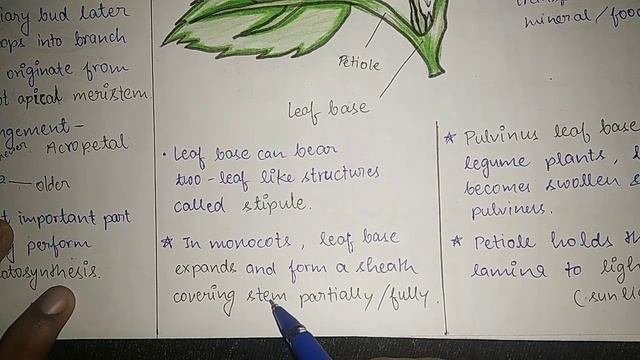 iary bud later
ops into branch
originate from
t apical meristem.
ngement-
never Acropetal
older
t important part
perform
atosynthesis.
Petiole
Leaf base
• Leaf base can bear
two-leaf like structures
called stipule.
☆ In monocots, leaf base
expands and form a sheath
covering stem partially/fully.
mineral/food
☆ Pulvinus leaf base
legume plants, l
becomes swollen s
pulviness.
☆ Petiole holds th
lamina to ligh
(sunli